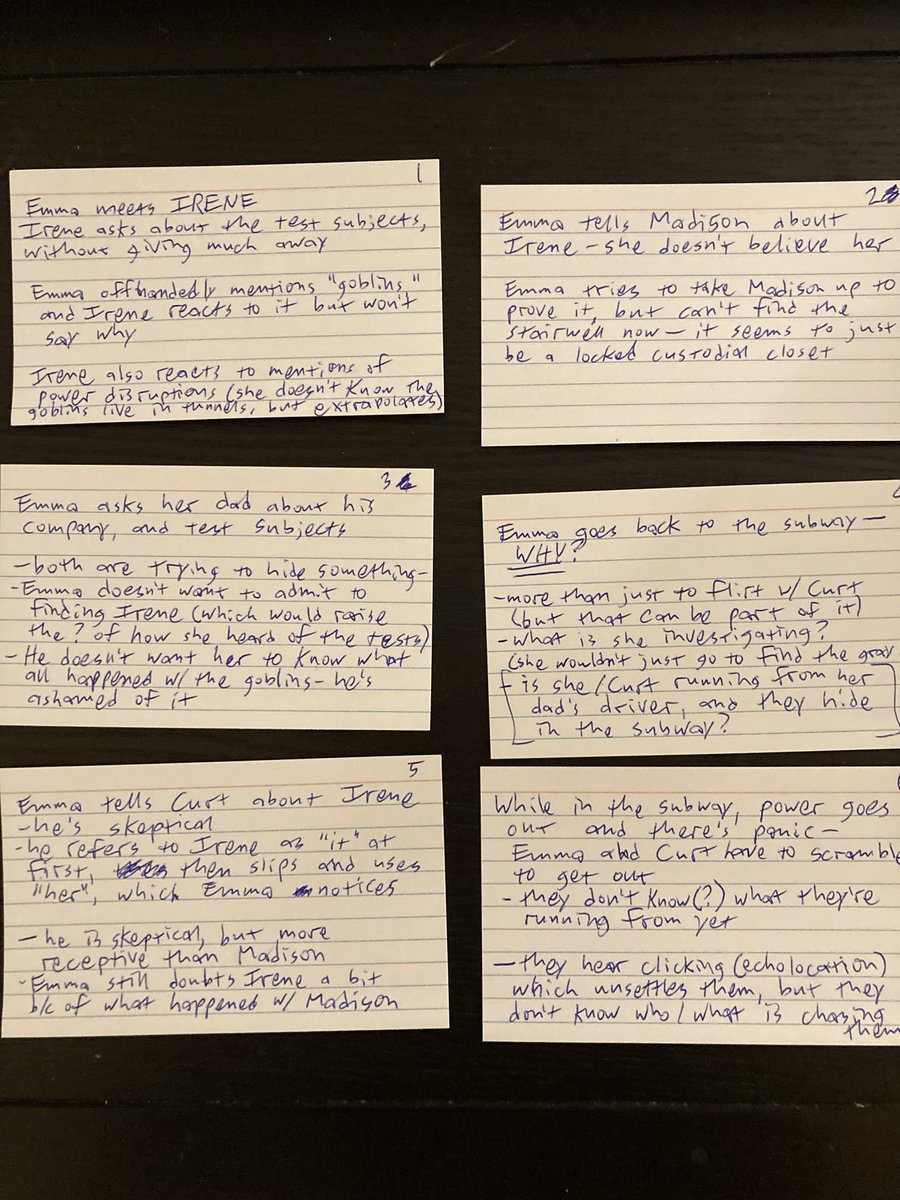 1
Emma meets IRENE
Irene asks about the test subjects,
without giving much away
Emma offhandedly mentions "goblins"
and Irene reacts to it but won't
say why
Irene also reacts to mentions of
power disruptions (she doesn't know the
goblins live in tunnels, but extrapolates)
2
Emma tells Madison about
Irene - she doesn't believe her
Emma tries to take Madison up to
prove it, but can't find the
stairwell now - it seems to just
be a locked custodial closet
3
Emma asks her dad about his
company, and test subjects
- both are trying to hide something -
- Emma doesn't want to admit to
finding Irene (which would raise
the ? of how she heard of the tests)
- He doesn't want her to know what
all happened w/ the goblins - he's
ashamed of it
Emma goes back to the subway -
WHY?
- more than just to flirt w/ Curt
(but that can be part of it)
- what is she investigating?
(she wouldn't just go to find the gray
- is she/Curt running from her
dad's driver, and they hide
in the subway?
5
Emma tells Curt about Irene
- he's skeptical
- he refers to Irene as "it" at
first, then slips and uses
"her", which Emma notices
- he is skeptical, but more
receptive than Madison
- Emma still doubts Irene a bit
b/c of what happened w/ Madison
While in the subway, power goes
out and there's panic -
Emma and Curt have to scramble
to get out
- they don't know(?) what they're
running from yet
- they hear clicking (echolocation)
which unsettles them, but they
don't know who/what is chasing
them